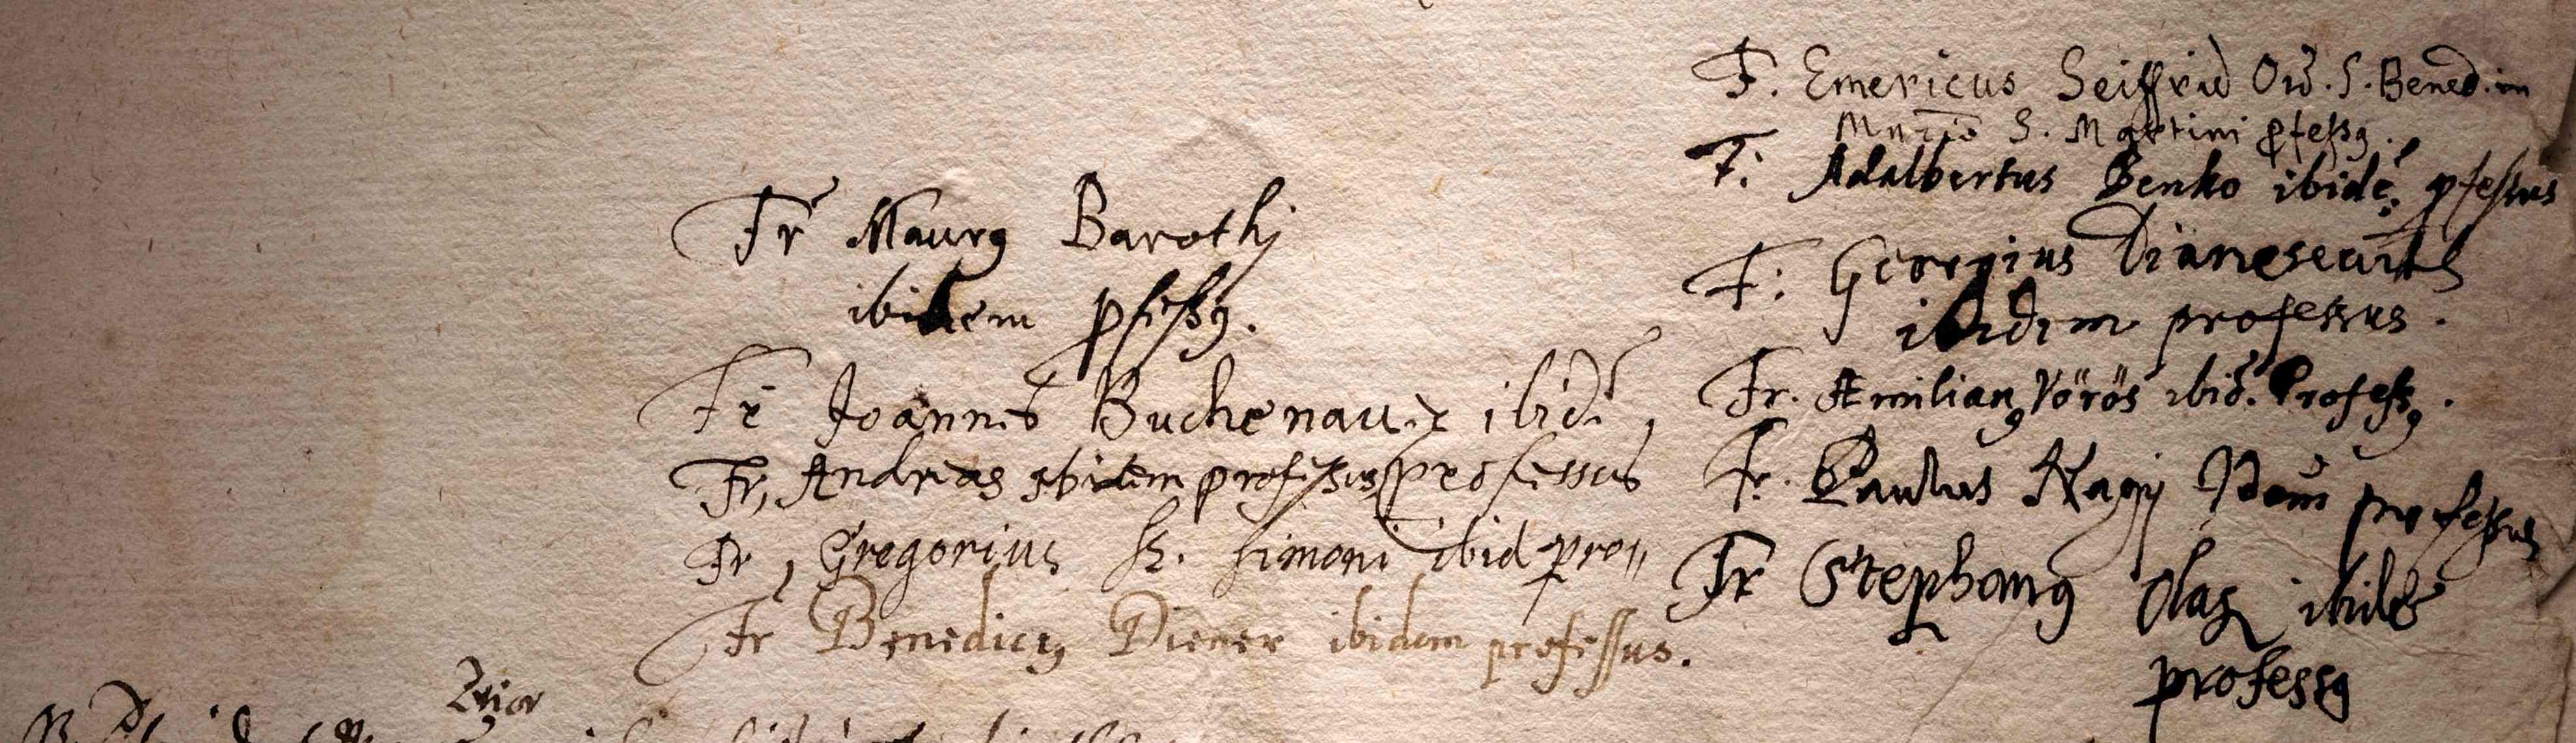 Fr Maurꝯ Barothj
ibidem ꝓfeßꝯ.
Fr Joannes Buchenauer ibidē,
Fr, Andreas ibidem profeßus professus
Fr, Gregorius Simoni ibid pro„
Fr Benedictꝯ Diener ibidem professus.
F. Emericus Seiffrid Ord. S. Bened. in
S. Martini ꝓfeßꝯ.
F: Adalbertus Benko ibidē. ꝓfessus
F: Georgius
ibidem professus.
Fr. Æmilianꝯ Vörös ibid. Profeßꝯ.
Fr. Paulus Nagy professus
Fr Stephanꝯ Olaz ibidē
professꝯ